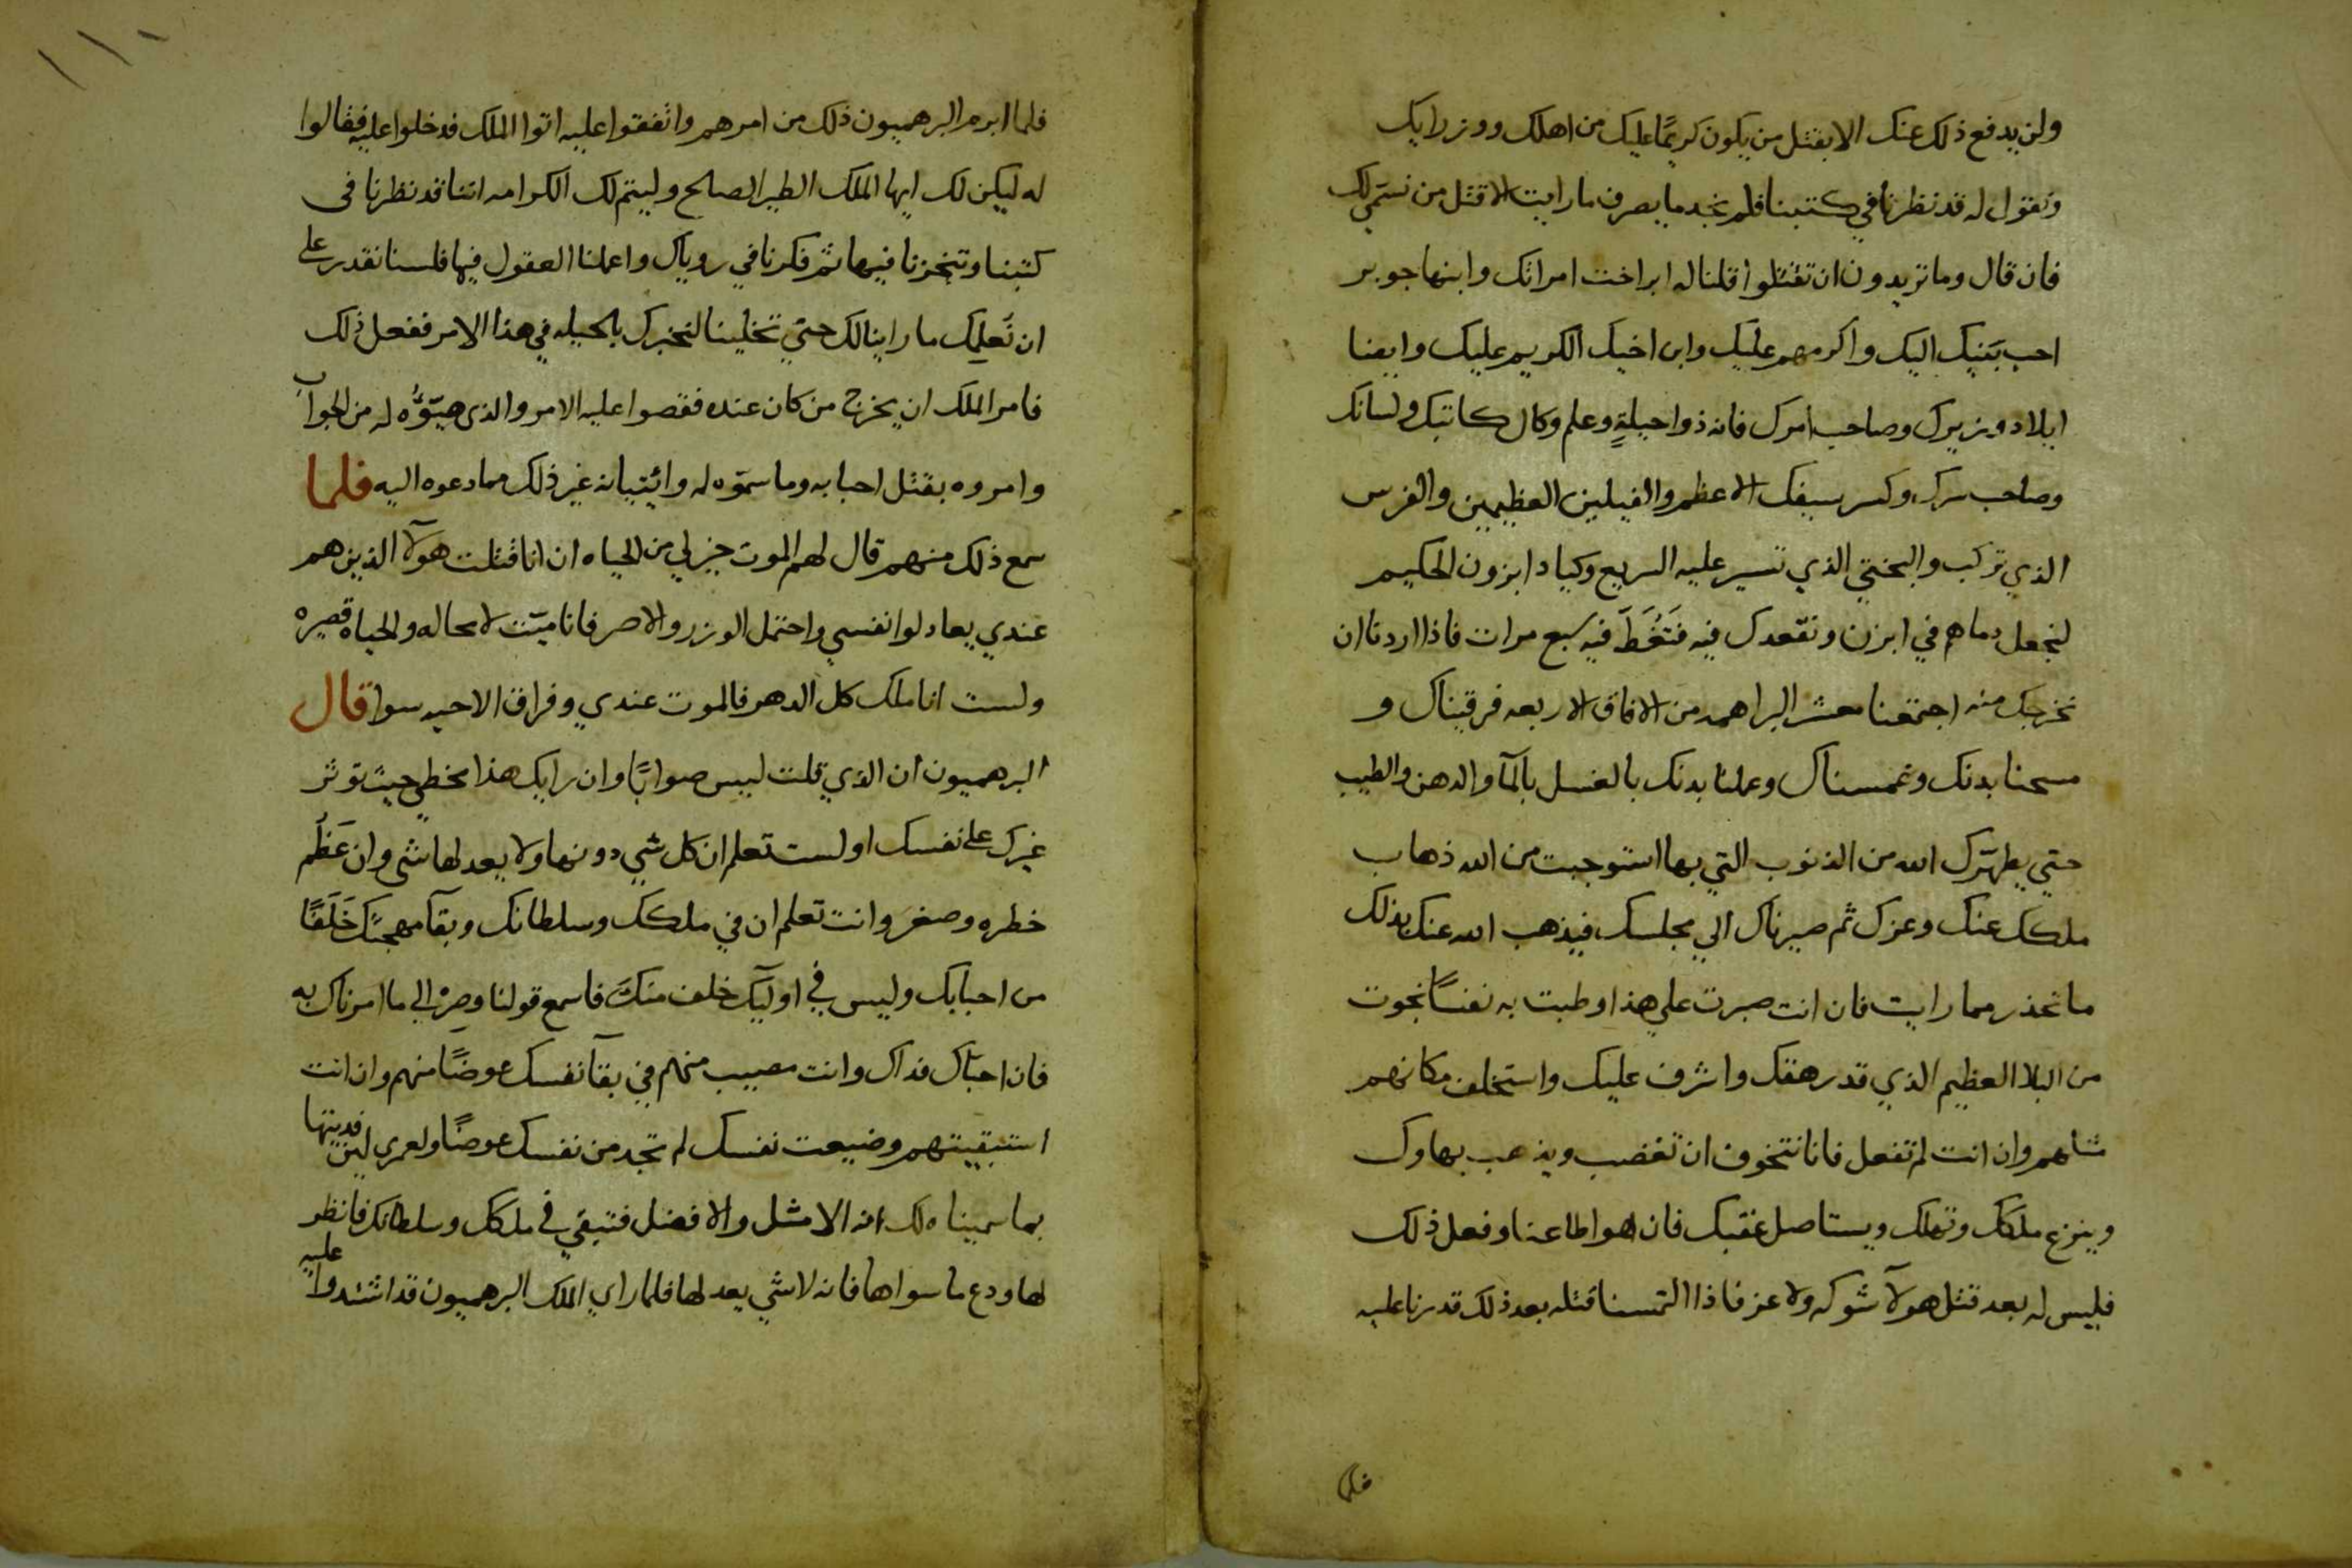 ولن يدفع ذلك عنك الا بقتل من يكون كريمًا عليك من اهلك ووزرايك
ونقول له قد نظرنا في كتبنا فلم نجد ما يصرف ما رايت الا قتل من نسمي لك
فان قال وما تريدون ان تقتلوا قلنا له ابراخت امراتك وابنها جوبر
احب بَنيك اليك واكرمهم عليك وابن اخيك الكريم عليك وايضا
ايلاد وزيرك وصاحب امرك فانه ذوا حيلةٍ وعلم وكال كاتبك ولسانك
وصاحب سرك وكسر سيفك الاعظم والفيلين العظيمين والفرس
الذي تركب والبختي الذي تسير عليه السريع وكيادابزون الحكيم
لنجعل دماهم في ابزن ونقعدك فيه فَتَغُطَّ فيه سبع مرات فاذا اردنا ان
نخرجك منه اجتمعنا معشر البراهمه من الافاق الاربعه فرقيناك و
مسحنا بدنك وغمسناك وعملنا بدنك بالغسل بالمآ والدهن والطيب
حتي يطهّرك الله من الذنوب التي بها استوجبت من الله ذهاب
ملكك عنك وعزك ثم صيرناك الي مجلسك فيذهب الله عنك بذلك
ما تحذر مما رايت فان انت صبرت علي هذا وطبت به نفسًا نجوت
من البلا العظيم الذي قد رهقك واشرف عليك واستخلف مكانهم
مثلهم وان انت لم تفعل فانا نتخوف ان تغضب ويذهب بهاوك
وينزع ملكك وتهلك ويستاصل عقبك فان هوا اطاعنا وفعل ذلك
فليس له بعد قتل هولآ شوكه ولا عز فاذا التمسنا قتله بعد ذلك قدرنا عليه
فلما
١١٠
فلما ابرم البرهميون ذلك من امرهم واتفقوا عليه اتوا الملك فدخلوا عليه فقالوا
له ليكن لك ايها الملك الطير الصالح وليتم لك الكرامه اننا قد نظرنا في
كتبنا وتنحزنا فيها ثم فكرنا في روياك واعملنا العقول فيها فلسنا نقدر علي
ان نُعلِمك ما راينا لك حتي تخلينا لنخبرك بالحيله في هذا الامر ففعل ذلك
فامر الملك ان يخرج من كان عنده فقصوا عليه الامر والذي هيّوُّه له من الجواب
وامروه بقتل احبابه وما سمّوه له وائتيانه غير ذلك مما دعوه اليه فلما
سمع ذلك منهم قال لهم الموت خير لي من الحياه ان انا قتلت هولآ الذين هم
عندي يعادلوا نفسي واحتمل الوزر والاصر فانا ميّت لا محاله والحياه قصيره
ولست انا ملك كل الدهر فالموت عندي وفراق الاحبه سوا قال
البرهميون ان الذي قلت ليس صوابًا وان رايك هذا مخطي حيث توثر
غيرك علي نفسك اولست تعلم ان كل شي دونها ولا يعد لها شي وان عَظُم
خطره وصغر وانت تعلم ان في ملكك وسلطانك وبقآ مهجتك خَلَفًا
من احبابك وليس في اوليّك خلف منك فاسمع قولنا وصِرْ الي ما امرناك به
فان احبّاك فداك وانت مصيب منهم في بقآ نفسك عوضًا منهم وان انت
استبقيتهم وضيعت نفسك لم تجد من نفسك عوضًا ولعمري لين فديتها
بما سميناه لك انه الامثل والافضل فتبقي في ملكك وسلطانك فانظر
لها ودع ما سواها فانه لا شي يعد لها فلما راي الملك البرهميون قد اشتدوا عليه